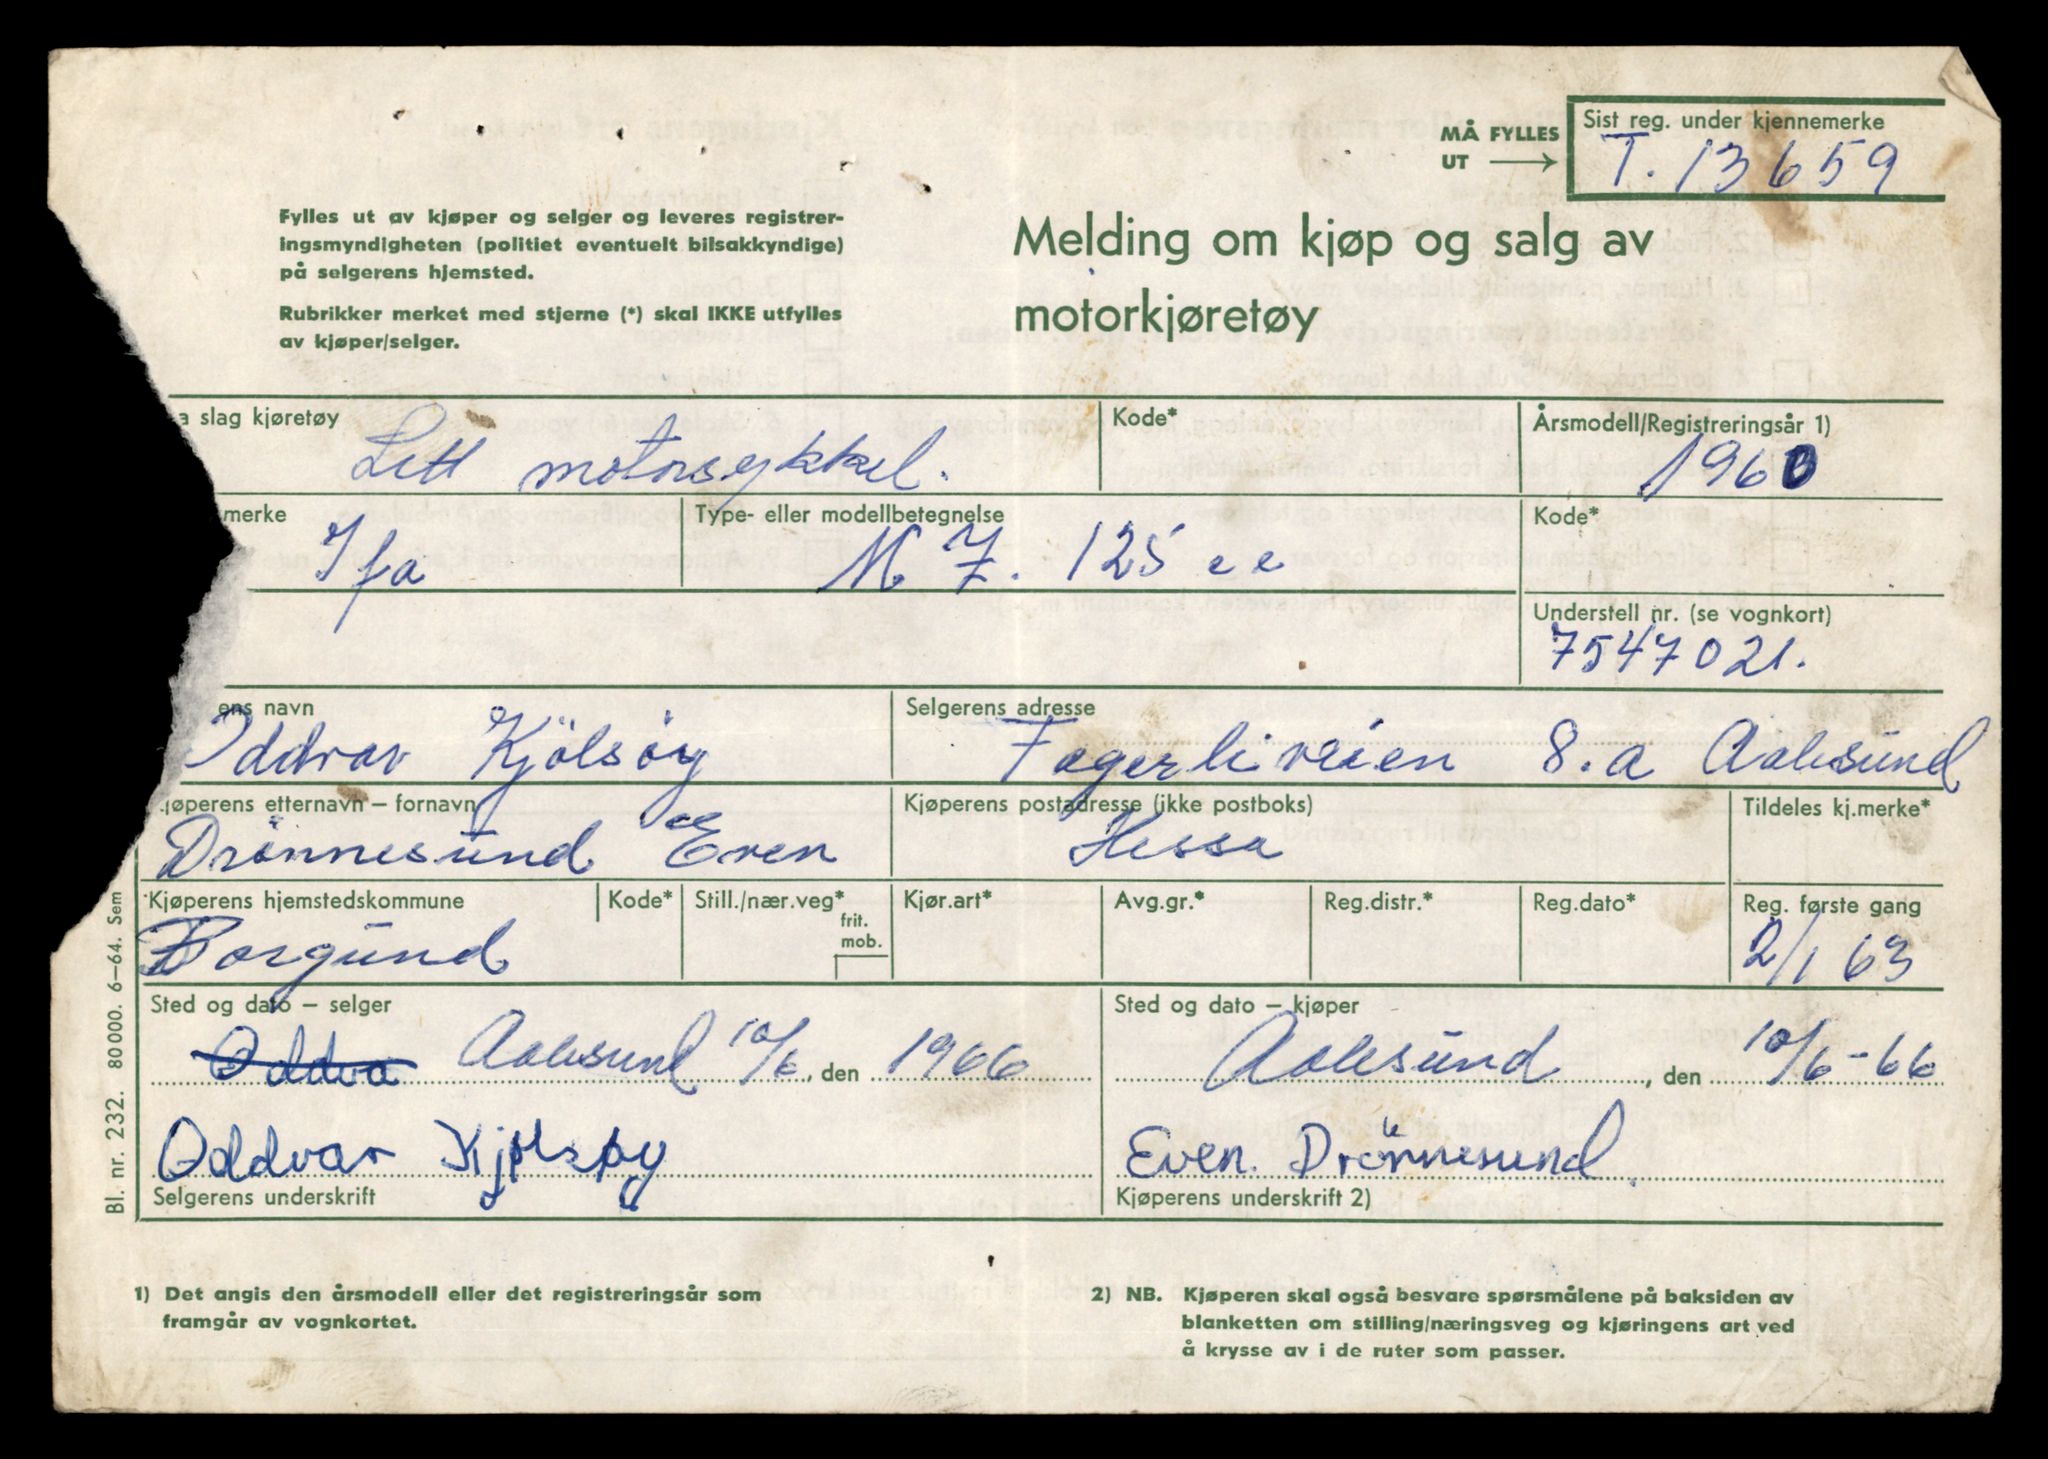 MÅ FYLLES
UT →
Sist reg. under kjennemerke
T. 13659
Fylles ut av kjøper og selger og leveres registrer-
ingsmyndigheten (politiet eventuelt bilsakkyndige)
på selgerens hjemsted.
Rubrikker merket med stjerne (*) skal IKKE utfylles
av kjøper/selger.
Melding om kjøp og salg av
motorkjøretøy
a slag kjøretøy
Lett motorsykkel.
Kode*
Årsmodell/Registreringsår 1)
1960
merke
Ifa
Type- eller modellbetegnelse
M Z. 125 cc
Kode*
Understell nr. (se vognkort)
7547021.
ens navn
Oddvar Kjölsöy
Selgerens adresse
Fagerliveien 8.a Aalesund
Kjøperens etternavn – fornavn
Drönnesund Even
Kjøperens postadresse (ikke postboks)
Hessa
Tildeles kj.merke*
Kjøperens hjemstedskommune
Borgund
Kode*
Still./nær.veg*
frit.
mob.
Kjør.art*
Avg.gr.*
Reg.distr.*
Reg.dato*
Reg. første gang
2/1 63
Sted og dato – selger
Oddva Aalesund 10/6, den 1966
Sted og dato – kjøper
Aalesund, den 10/6-66
Oddvar Kjølsøy
Selgerens underskrift
Even. Drönnesund
Kjøperens underskrift 2)
Bl. nr. 232. 80000. 6–64. Sem
1) Det angis den årsmodell eller det registreringsår som
framgår av vognkortet.
2) NB. Kjøperen skal også besvare spørsmålene på baksiden av
blanketten om stilling/næringsveg og kjøringens art ved
å krysse av i de ruter som passer.